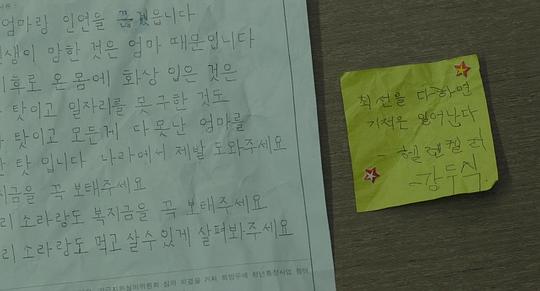 엄마랑 인연을 끊겠읍니다
생이 망한 것은 엄마 때문입니다
후로 온 몸에 화상 입은 것은
탓이고 일자리를 못 구한 것도
탓이고 모든게 다 못난 엄마를
탓 입니다 나라에서 제발 도와주세요
지금을 꼭 보태주세요
리 소라랑도 복지금을 꼭 보태주세요
리 소라랑도 먹고 살수 있게 살펴봐주세요
최선을 다하면
기적은 일어난다
- 헬렌켈러
- 강두식